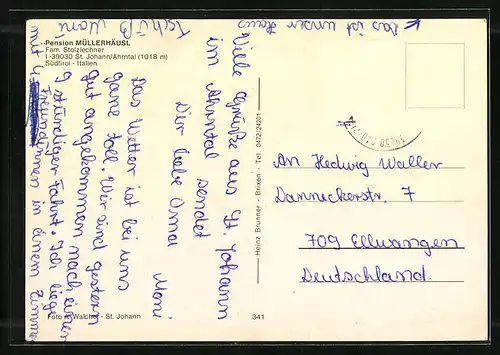 Pension MÜLLERHÄUSL
Fam. Stolzlechner
I-39030 St. Johann/Ahrntal (1018 m)
Südtirol - Italien
← Das ist unser Haus
Viele Grüße aus St. Johann
im Ahrntal sendet
Dir liebe Oma
Moni
Das Wetter ist bei uns
ganz toll. Wir sind gestern
gut angekommen nach einer
9 stündiger Fahrt. Ich liege
mit 4 Freundinnen in einem Zimmer
Tschüß Moni
An Hedwig Waller
Danneckerstr. 7
709 Ellwangen
Deutschland.
Heinz Brunner - Brixen - Tel. 0472/24201
Foto A. Walcher - St. Johann
341